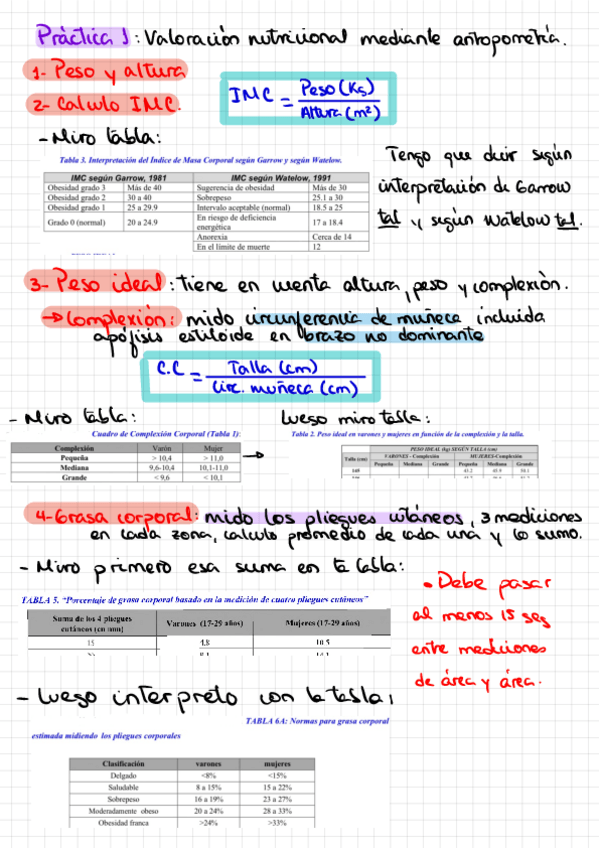 Práctica 1: Valoración nutricional mediante antropometría.
1- Peso y altura
2- Calculo IMC.
IMC = Peso (Kg) / Altura (m²)
- Miro tabla:
Tabla 3. Interpretación del Indice de Masa Corporal según Garrow y según Watelow.
IMC según Garrow, 1981 IMC según Watelow, 1991
Obesidad grado 3 Más de 40 Sugerencia de obesidad Más de 30
Obesidad grado 2 30 a 40 Sobrepeso 25.1 a 30
Obesidad grado 1 25 a 29.9 Intervalo aceptable (normal) 18.5 a 25
Grado 0 (normal) 20 a 24.9 En riesgo de deficiencia energética 17 a 18.4
Anorexia Cerca de 14
En el limite de muerte 12
Tengo que decir según
interpretación de Garrow
tal y según Watelow tal.
3- Peso ideal: tiene en cuenta altura, peso y complexión.
→ Complexión: mido circunferencia de muñeca incluida
apófisis estiloide en brazo no dominante
C.C = Talla (cm) / Circ. muñeca (cm)
- Miro tabla:
Cuadro de Complexión Corporal (Tabla 1):
Complexión Varón Mujer
Pequeña > 10,4 > 11,0
Mediana 9,6-10,4 10,1-11,0
Grande < 9,6 < 10,1
→
Luego miro tabla:
Tabla 2. Peso ideal en varones y mujeres en función de la complexión y la talla.
PESO IDEAL (kg) SEGÚN TALLA (cm)
Talla (cm) VARONES - Complexión MUJERES-Complexión
Pequeña Mediana Grande Pequeña Mediana Grande
4- Grasa corporal: mido los pliegues cutáneos, 3 mediciones
en cada zona, calculo promedio de cada una y lo sumo.
- Miro primero esa suma en ta tabla:
TABLA 5. “Porcentaje de grasa corporal basado en la medición de cuatro pliegues cutáneos”
Suma de los 4 pliegues cutáneos (en mm) Varones (17-29 años) Mujeres (17-29 años)
15 4.8 10.5
• Debe pasar
al menos 15 seg
entre mediciones
de área y área.
- Luego interpreto con la tabla:
TABLA 6A: Normas para grasa corporal
estimada midiendo los pliegues corporales
Clasificación varones mujeres
Delgado <8% <15%
Saludable 8 a 15% 15 a 22%
Sobrepeso 16 a 19% 23 a 27%
Moderadamente obeso 20 a 24% 28 a 33%
Obesidad franca >24% >33%